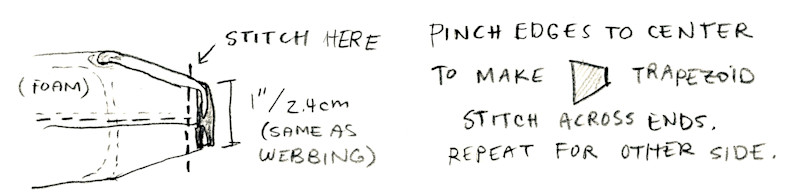 STITCH HERE
(FOAM)
1"/2.4cm
(SAME AS
WEBBING)
PINCH EDGES TO CENTER
TO MAKE TRAPEZOID
STITCH ACROSS ENDS.
REPEAT FOR OTHER SIDE.